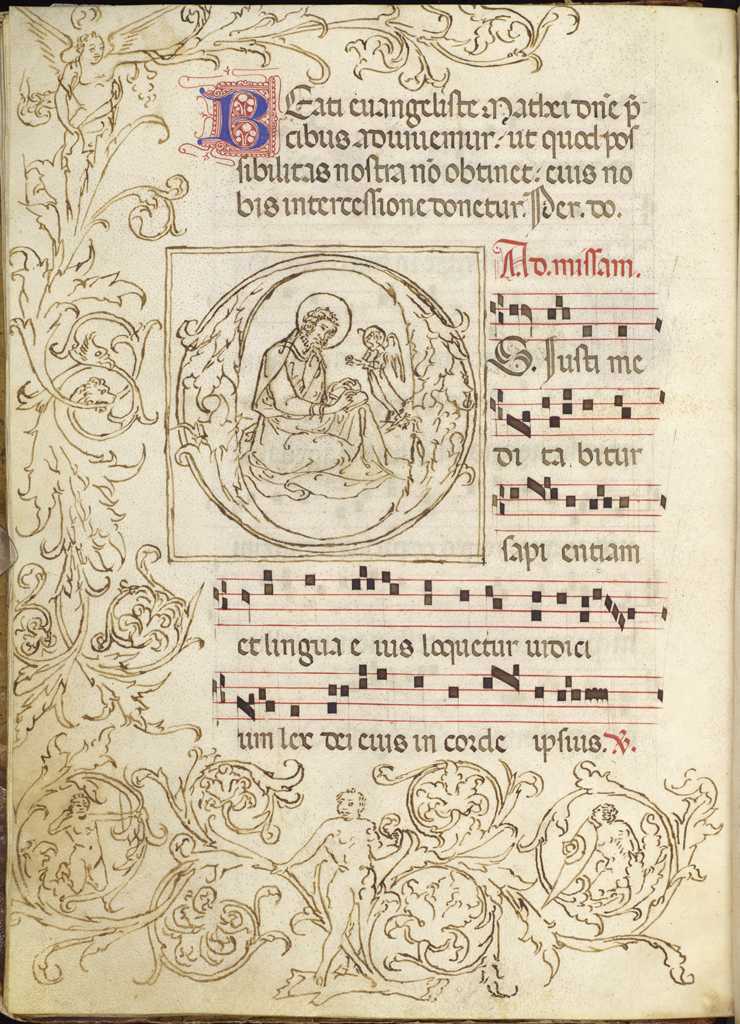 Beati euangeliste Mathei dn̄e p̄
cibus adiuuemur: ut quod pos
sibilitas nostra nō obtinet: eius no
bis intercessione donetur. Per. do.
Ad. missam.
S. Iusti me
di ta bitur
sapi entiam
et lingua e ius loquetur iudici
um lex dei eius in corde ipsius. V.